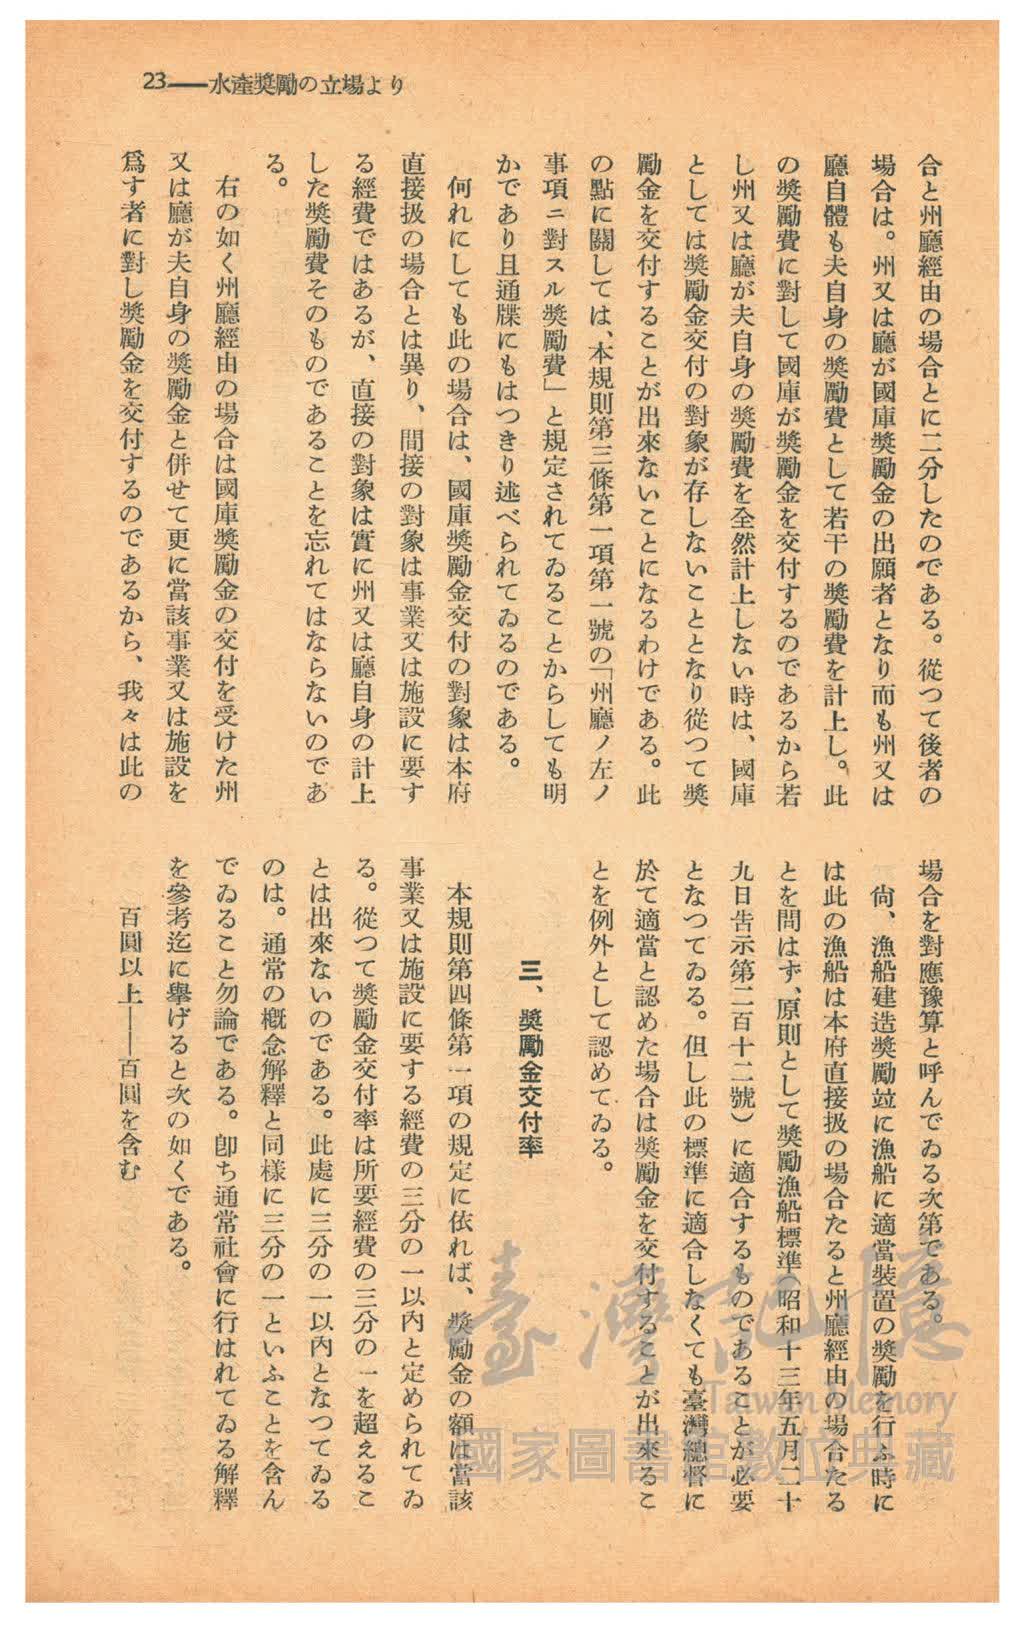 23——水產獎勵の立場より
合と州廳經由の場合とに二分したのである。從つて後者の
場合は。州又は廳が國庫獎勵金の出願者となり而も州又は
廳自體も夫自身の獎勵費として若干の獎勵費を計上し。此
の獎勵費に對して國庫が獎勵金を交付するのであるから若
し州又は廳が夫自身の獎勵費を全然計上しない時は、國庫
としては獎勵金交付の對象が存しないこととなり從つて獎
勵金を交付することが出來ないことになるわけである。此
の點に關しては、本規則第三條第一項第一號の「州廳ノ左ノ
事項ニ對スル獎勵費」と規定されてゐることからしても明
かであり且通牒にもはつきり述べられてゐるのである。
何れにしても此の場合は、國庫獎勵金交付の對象は本府
直接扱の場合とは異り、間接の對象は事業又は施設に要す
る經費ではあるが、直接の對象は實に州又は廳自身の計上
した獎勵費そのものであることを忘れてはならないのであ
る。
右の如く州廳經由の場合は國庫獎勵金の交付を受けた州
又は廳が夫自身の獎勵金と併せて更に當該事業又は施設を
爲す者に對し獎勵金を交付するのであるから、我々は此の
場合を對應豫算と呼んでゐる次第である。
尙、漁船建造獎勵竝に漁船に適當裝置の獎勵を行ふ時に
は此の漁船は本府直接扱の場合たると州廳經由の場合たる
とを問はず、原則として獎勵漁船標準(昭和十三年五月二十
九日吿示第二百十二號)に適合するものであることが必要
となつてゐる。但し此の標準に適合しなくても臺灣總督に
於て適當と認めた場合は獎勵金を交付することが出來るこ
とを例外として認めてゐる。
三、獎勵金交付率
本規則第四條第一項の規定に依れば、獎勵金の額は當該
事業又は施設に要する經費の三分の一以內と定められてゐ
る。從つて獎勵金交付率は所要經費の三分の一を超えるこ
とは出來ないのである。此處に三分の一以內となつてゐる
のは。通常の槪念解釋と同樣に三分の一といふことを含ん
でゐること勿論である。卽ち通常社會に行はれてゐる解釋
を參考迄に擧げると次の如くである。
百圓以上——百圓を含む
臺灣記憶
Taiwan Memory
國家圖書館數位典藏